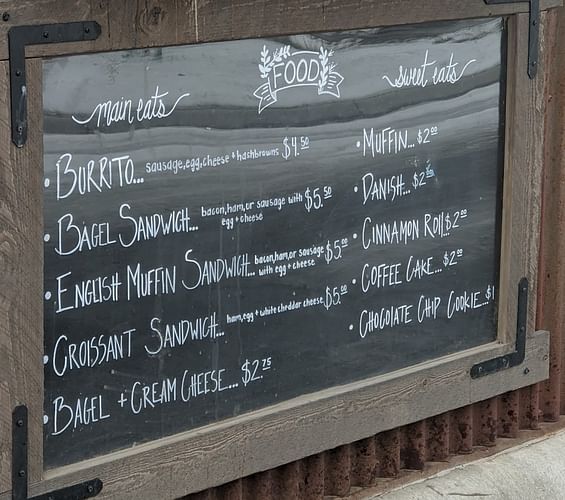 FOOD
main eats
BURRITO... sausage, egg, cheese + hashbrowns $4.50
BAGEL SANDWICH... bacon, ham, or sausage with $5.50
egg + cheese
ENGLISH MUFFIN SANDWICH... bacon, ham, or sausage $5.00
with egg + cheese
CROISSANT SANDWICH... ham, egg + white cheddar cheese $5.00
BAGEL + CREAM CHEESE... $2.75
sweet eats
MUFFIN... $2.00
DANISH... $2.00
CINNAMON ROLL $2.00
COFFEE CAKE... $2.00
CHOCOLATE CHIP COOKIE... $1